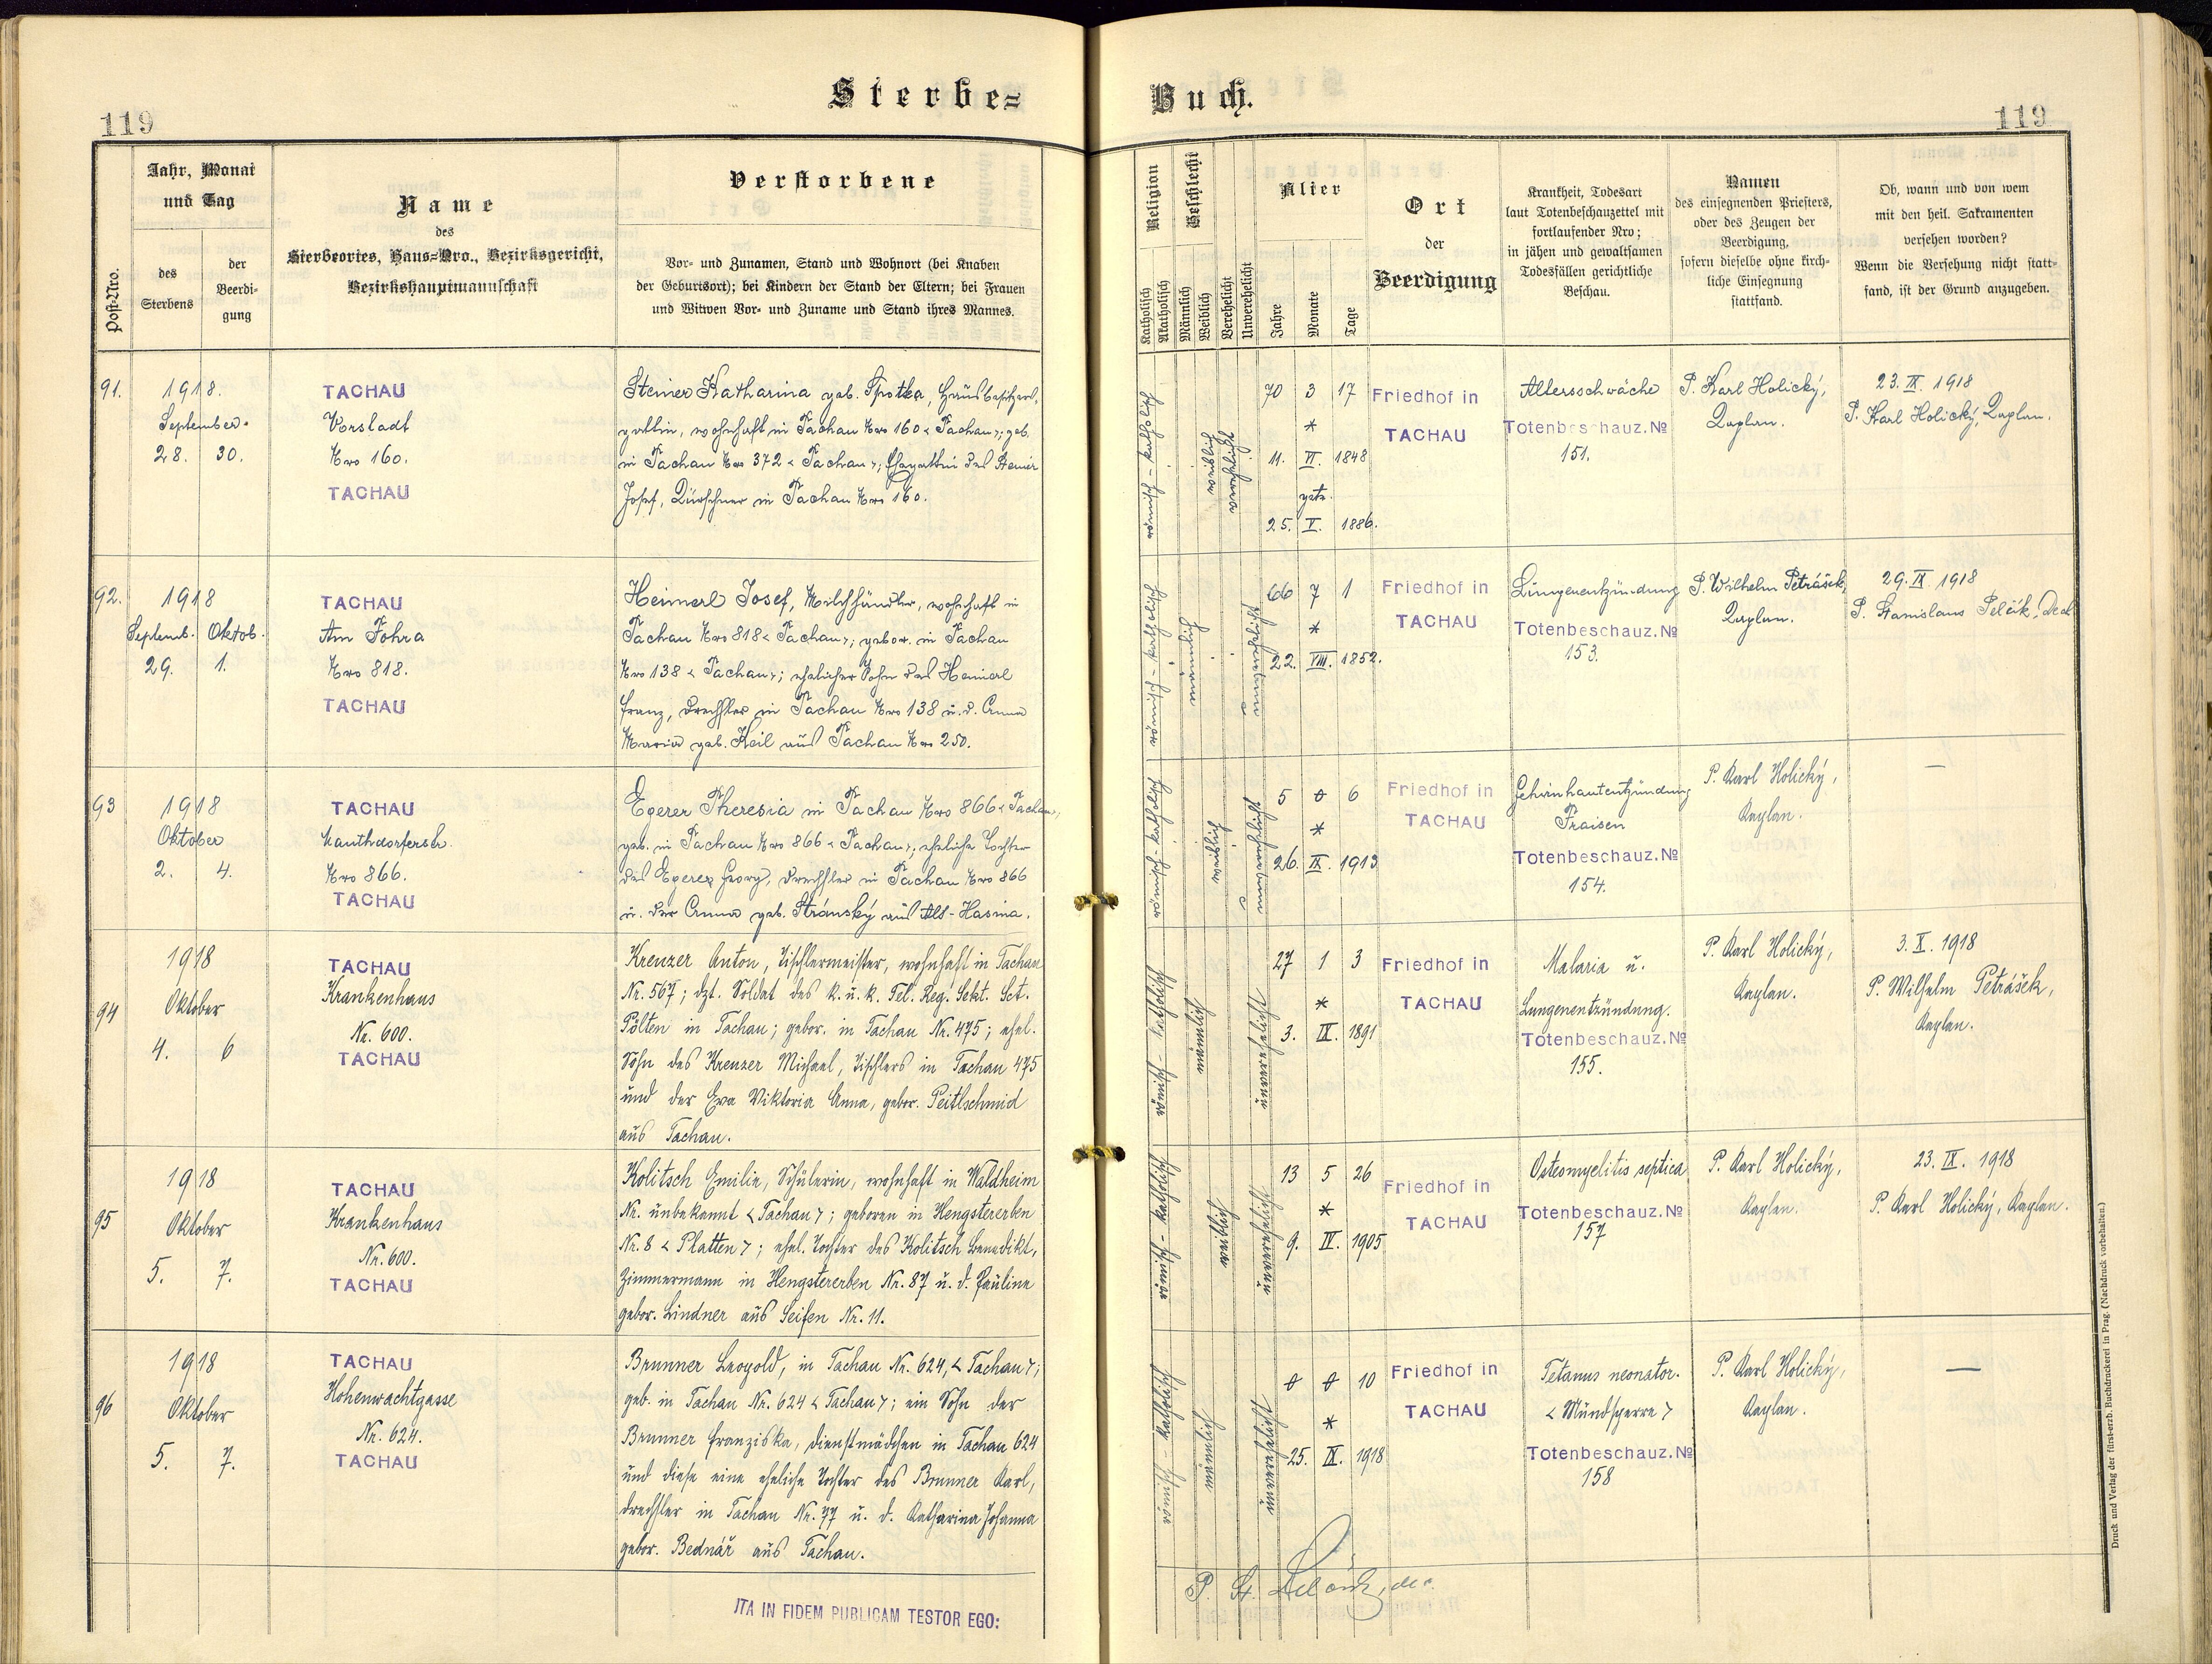 Sterbe=
Buch.
119
119
Post-Nro.
Jahr, Monat
und Tag
des
Sterbens
der
Beerdi-
gung
Name
des
Sterbeortes, Haus=Nro., Bezirksgericht,
Bezirkshauptmannschaft
Verstorbene
Vor- und Zunamen, Stand und Wohnort (bei Knaben
der Geburtsort); bei Kindern der Stand der Eltern; bei Frauen
und Witwen Vor- und Zuname und Stand ihres Mannes.
Religion
Katholisch
Akatholisch
Geschlecht
Männlich
Weiblich
Verehelicht
Unverehelicht
Alter
Jahre
Monate
Tage
Ort
der
Beerdigung
Krankheit, Todesart
laut Totenbeschauzettel mit
fortlaufender Nro;
in jähen und gewaltsamen
Todesfällen gerichtliche
Beschau.
Namen
des einsegnenden Priesters,
oder des Zeugen der
Beerdigung,
sofern dieselbe ohne kirch-
liche Einsegnung
stattfand.
Ob, wann und von wem
mit den heil. Sakramenten
versehen worden?
Wenn die Versehung nicht statt-
fand, ist der Grund anzugeben.
91.
1918.
September.
28. 30.
TACHAU
Vorstadt
Nro 160.
TACHAU
Steiner Katharina geb. Spotka, Hausbesitzers-
gattin, wohnhaft in Tachau Nro 160 < Tachau >; geb.
in Tachau Nro 372 < Tachau >; Ehegattin des Steiner
Josef, Kürschner in Tachau Nro 160.
römisch-katholisch
weiblich
verehelicht
70 3 17
*
11. VI. 1848
getr.
25. V. 1886.
Friedhof in
TACHAU
Altersschwäche
Totenbeschauz. №
151.
P. Karl Holický,
Kaplan.
23. IX. 1918
P. Karl Holický, Kaplan.
92.
1918
Septemb. Oktob.
29. 1.
TACHAU
Am Fohra
Nro 818.
TACHAU
Heimerl Josef, Milchhändler, wohnhaft in
Tachau Nro 818 < Tachau >; gebor. in Tachau
Nro 138 < Tachau >; ehelicher Sohn des Heimerl
Franz, Drechsler in Tachau Nro 138 u. d. Anna
Maria geb. Keil aus Tachau Nro 250.
römisch-katholisch
männlich
unverehelicht
66 7 1
*
22. VIII. 1852.
Friedhof in
TACHAU
Lungenentzündung
Totenbeschauz. №
153.
P. Wilhelm Petrášek,
Kaplan.
29. IX. 1918
P. Stanislaus Pelčík, Dech
93
1918
Oktober
2. 4.
TACHAU
Mauthdorferstr.
Nro 866.
TACHAU
Egerer Theresia in Tachau Nro 866 < Tachau >,
geb. in Tachau Nro 866 < Tachau >; eheliche Tochter
des Egerer Georg, Drechsler in Tachau Nro 866
u. der Anna geb. Stránský aus Alt-Hasina.
römisch-katholisch
weiblich
unverehelicht
5 0 6
*
26. IX. 1913
Friedhof in
TACHAU
Gehirnhautentzündung
Fraisen
Totenbeschauz. №
154.
P. Karl Holický,
Kaplan.
—
94
1918
Oktober
4. 6
TACHAU
Krankenhaus
Nr. 600.
TACHAU
Kreuzer Anton, Tischlermeister, wohnhaft in Tachau
Nr. 567; dzt. Soldat des k. u. k. Tel. Reg. Sekt. Sct.
Pölten in Tachau; gebor. in Tachau Nr. 475; ehel.
Sohn des Kreuzer Michael, Tischlers in Tachau 475
und der Eva Viktoria Anna, gebor. Peitlschmid
aus Tachau.
römisch-katholisch
männlich
unverehelicht
27 1 3
*
3. IX. 1891
Friedhof in
TACHAU
Malaria u.
Lungenentzündung.
Totenbeschauz. №
155.
P. Karl Holický,
Kaplan.
3. X. 1918
P. Wilhelm Petrášek,
Kaplan.
95
1918
Oktober
5. 7.
TACHAU
Krankenhaus
Nr. 600.
TACHAU
Kolitsch Emilie, Schülerin, wohnhaft in Waldheim
Nr. unbekannt < Tachau >; geboren in Hengstererben
Nr. 8 < Platten >; ehel. Tochter des Kolitsch Benedikt,
Zimmermann in Hengstererben Nr. 87 u. d. Pauline
gebor. Lindner aus Seifen Nr. 11.
römisch-katholisch
weiblich
unverehelicht
13 5 26
*
9. IV. 1905
Friedhof in
TACHAU
Osteomyelitis septica
Totenbeschauz. №
157
P. Karl Holický,
Kaplan.
23. IX. 1918
P. Karl Holický, Kaplan.
96
1918
Oktober
5. 7.
TACHAU
Hohenwachtgasse
Nr. 624.
TACHAU
Brunner Leopold, in Tachau Nr. 624, < Tachau >;
geb. in Tachau Nr. 624 < Tachau >; ein Sohn der
Brunner Franziska, Dienstmädchen in Tachau 624
und diese eine eheliche Tochter des Brunner Karl,
Drechsler in Tachau Nr. 77 u. d. Katharina Johanna
gebor. Bednář aus Tachau.
römisch-katholisch
männlich
unverehelicht
0 0 10
*
25. IX. 1918
Friedhof in
TACHAU
Tetanus neonator.
< Mundsperre >
Totenbeschauz. №
158
P. Karl Holický,
Kaplan.
—
ITA IN FIDEM PUBLICAM TESTOR EGO:
P. St. Pelčík, dec.
Druck und Verlag der fürst-erzb. Buchdruckerei in Prag. (Nachdruck vorbehalten.)